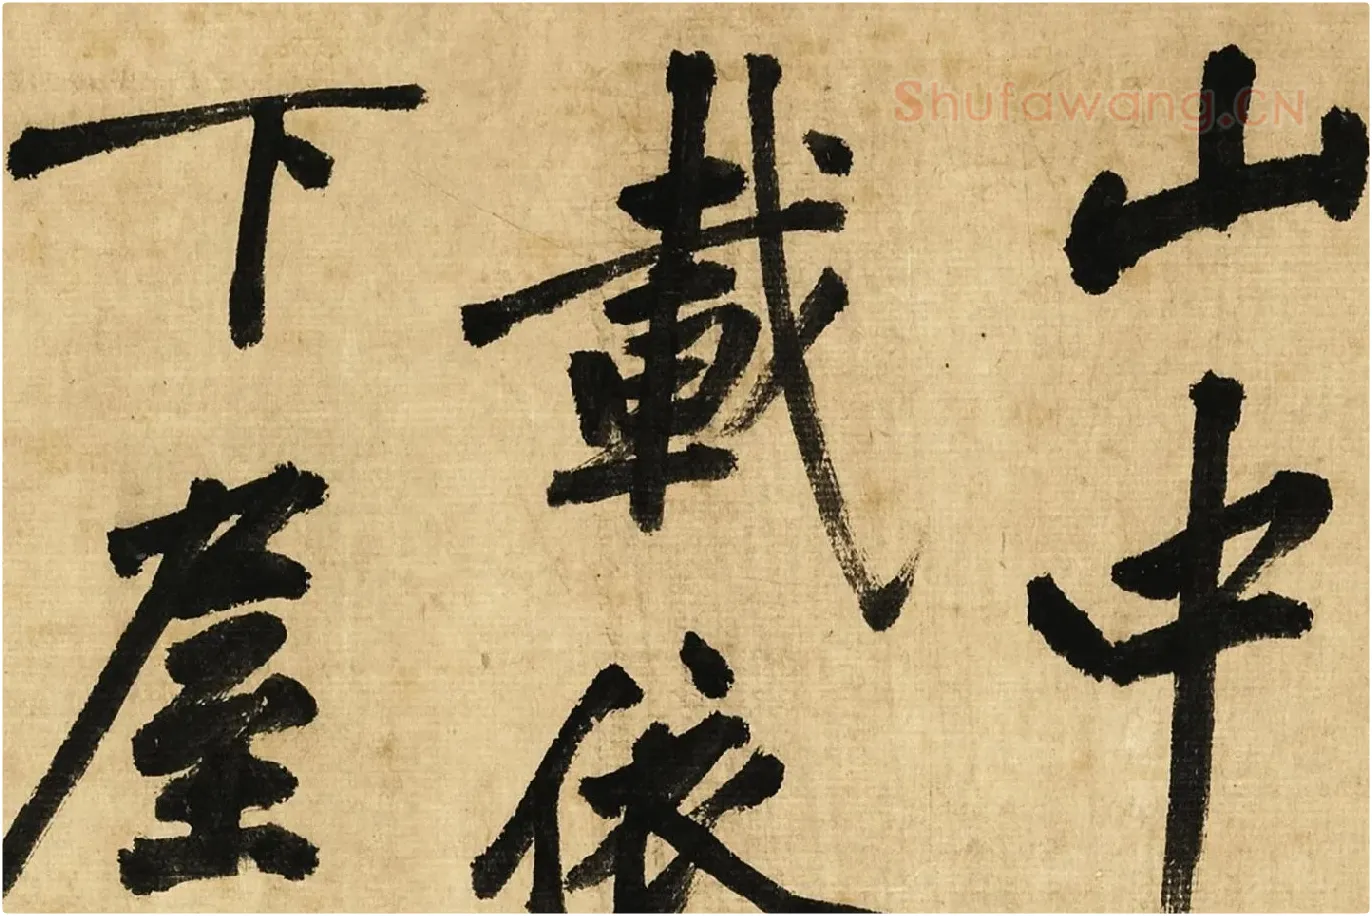 Shufawang.CN
山中
載依
下